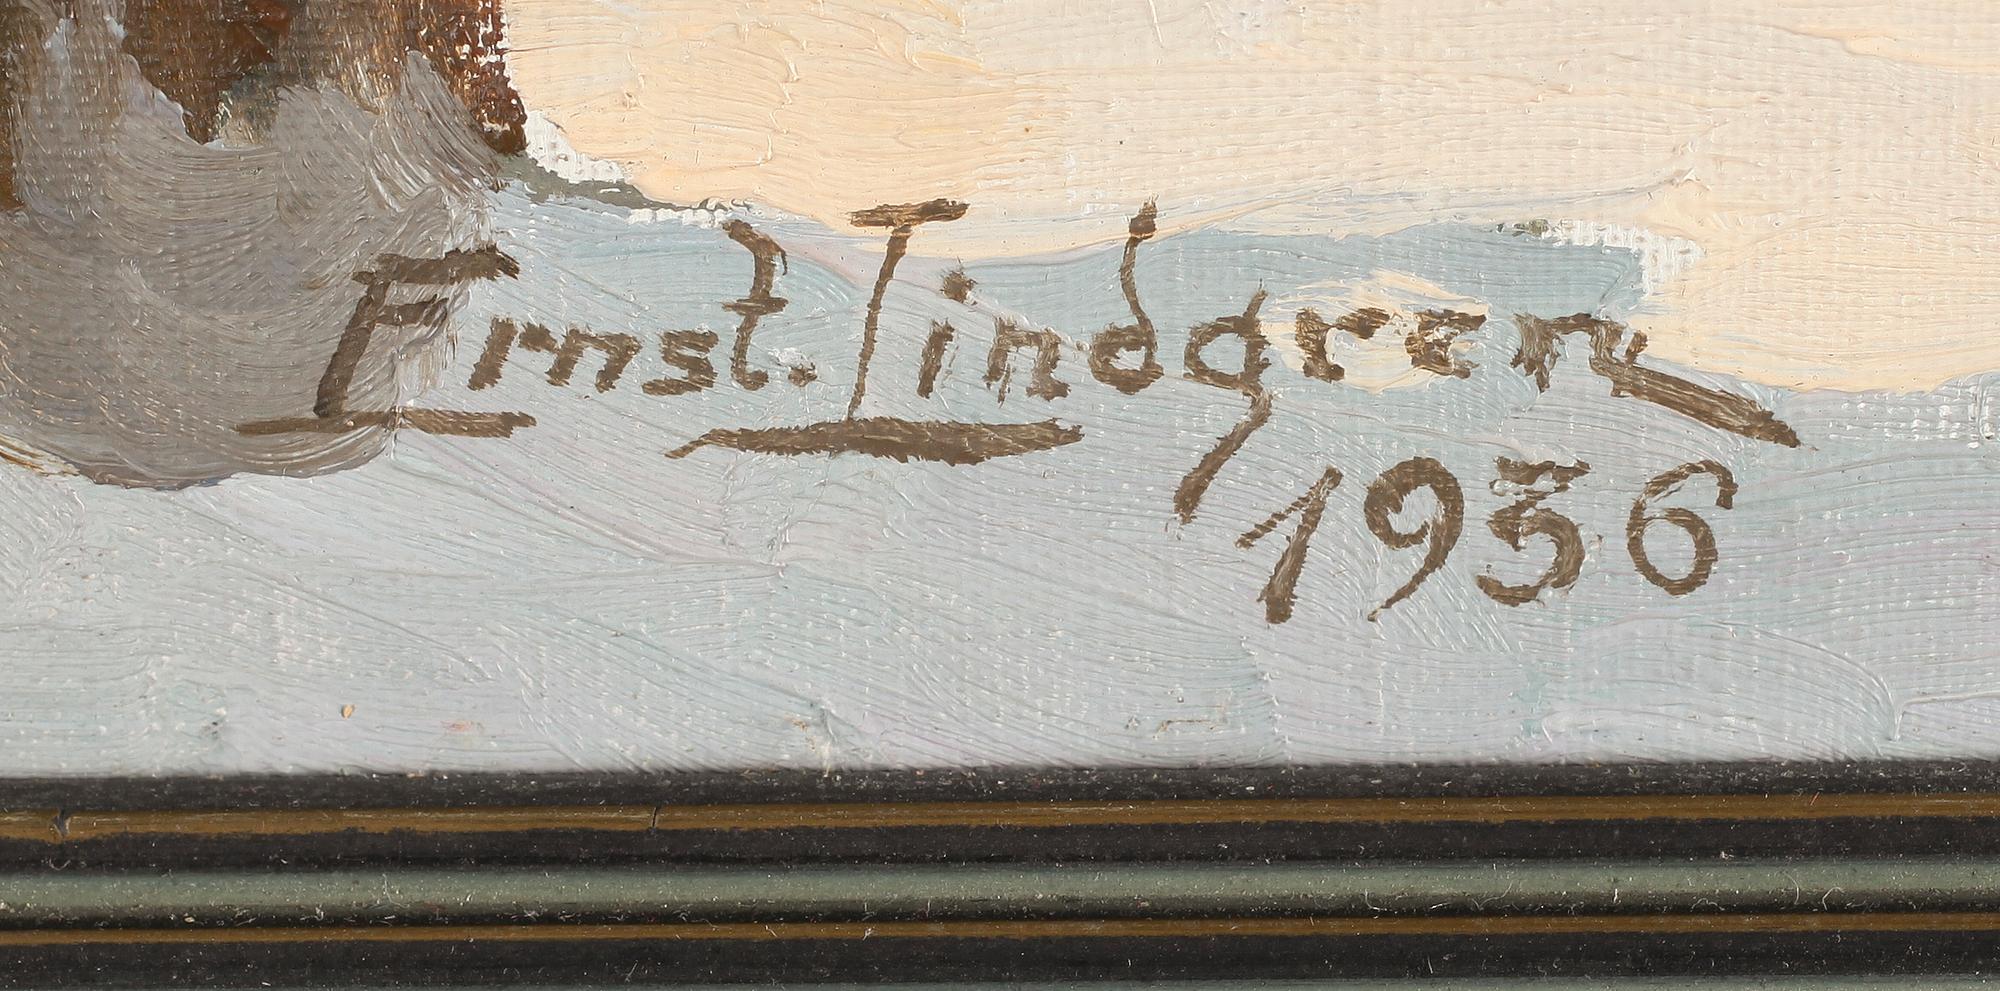 Ernst. Lindgren
1936